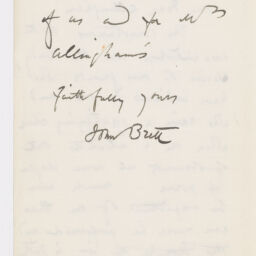 of us and for Mrs
Allingham's
faithfully yours
John Brett